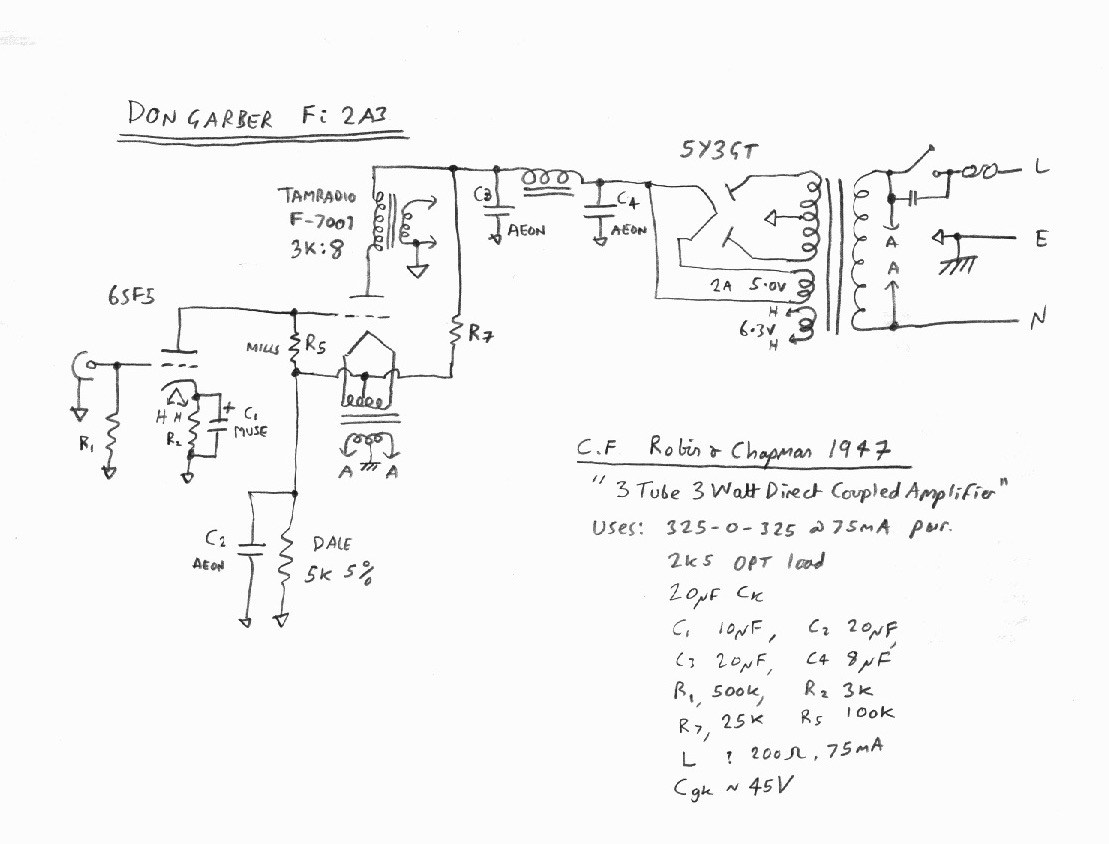 DON GARBER Fi 2A3
5Y3GT
L
TAMRADIO
F-7001
3K:8
C3
AEON
C4
AEON
A
A
E
2A 5.0V
H
6.3V
H
N
6SF5
MILLS R5
R7
R1
H H
R2
+
C1
MUSE
A A
C2
AEON
DALE
5K 5%
C.F Robin & Chapman 1947
"3 Tube 3 Watt Direct Coupled Amplifier"
Uses: 325-0-325 @ 75mA pwr.
2K5 OPT load
20µF CK
C1 10µF, C2 20µF,
C3 20µF, C4 8µF
R1, 500K, R2 3K
R7, 25K R5 100K
L ? 200Ω, 75mA
Cgk ~ 45V